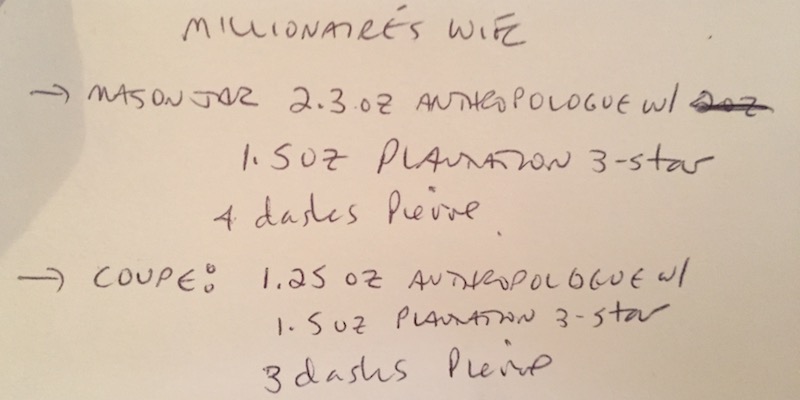 MILLIONAIRE'S WIFE
→ MASON JAR 2.3 OZ ANTHROPOLOGUE W/
1.5 OZ PLANTATION 3-star
4 dashes Pierre
→ COUPE: 1.25 OZ ANTHROPOLOGUE W/
1.5 OZ PLANTATION 3-star
3 dashes Pierre